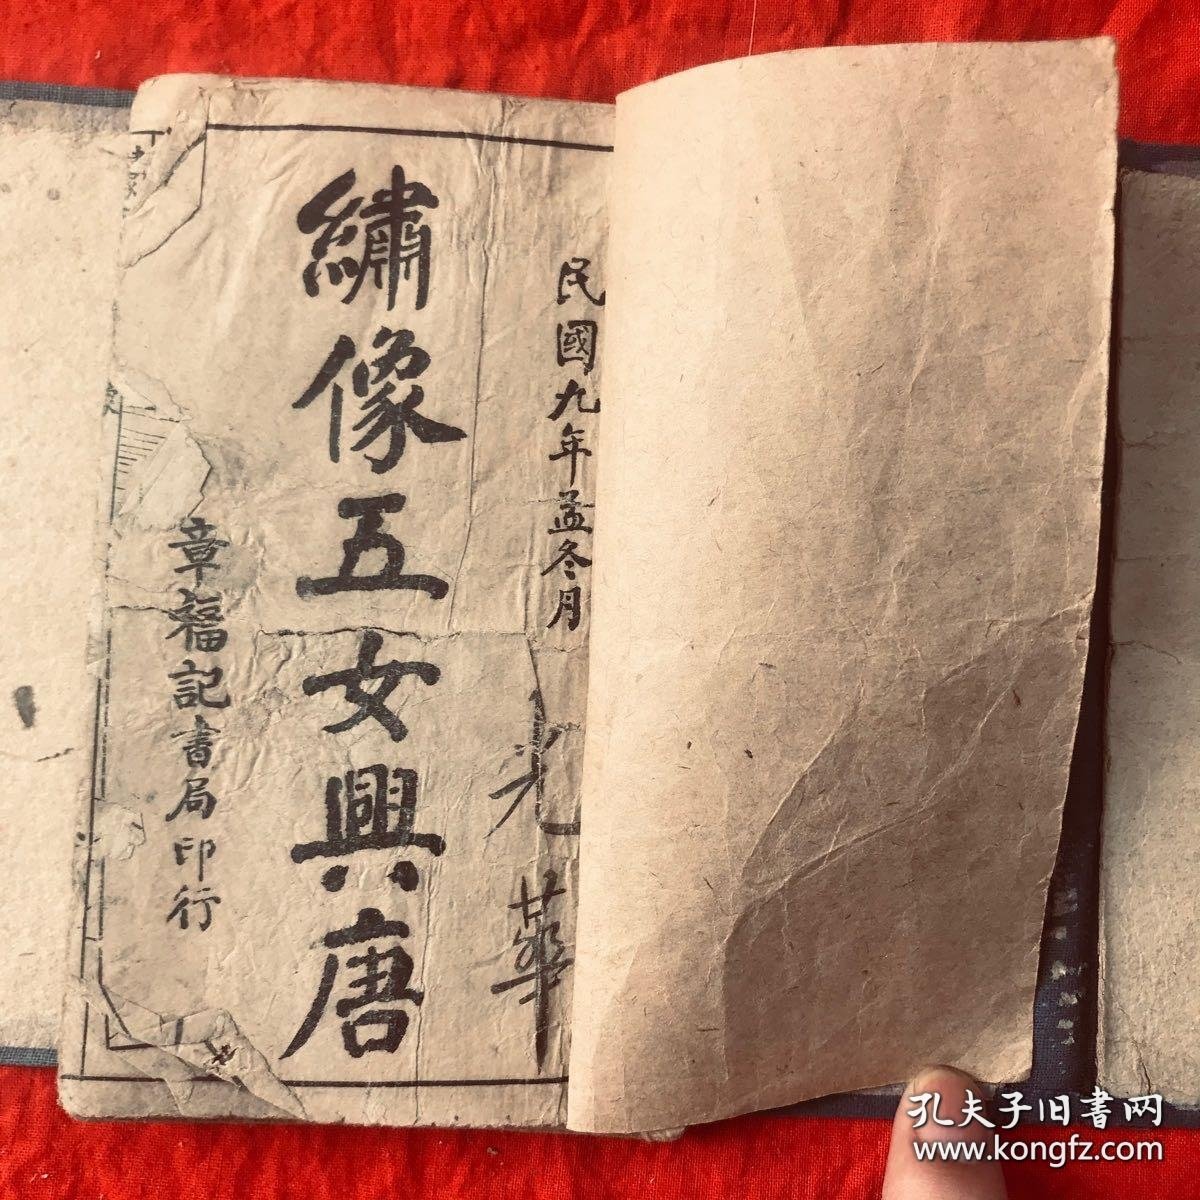 民國九年孟冬月
光華
繡像五女興唐
章福記書局印行
孔夫子旧書网
www.kongfz.com